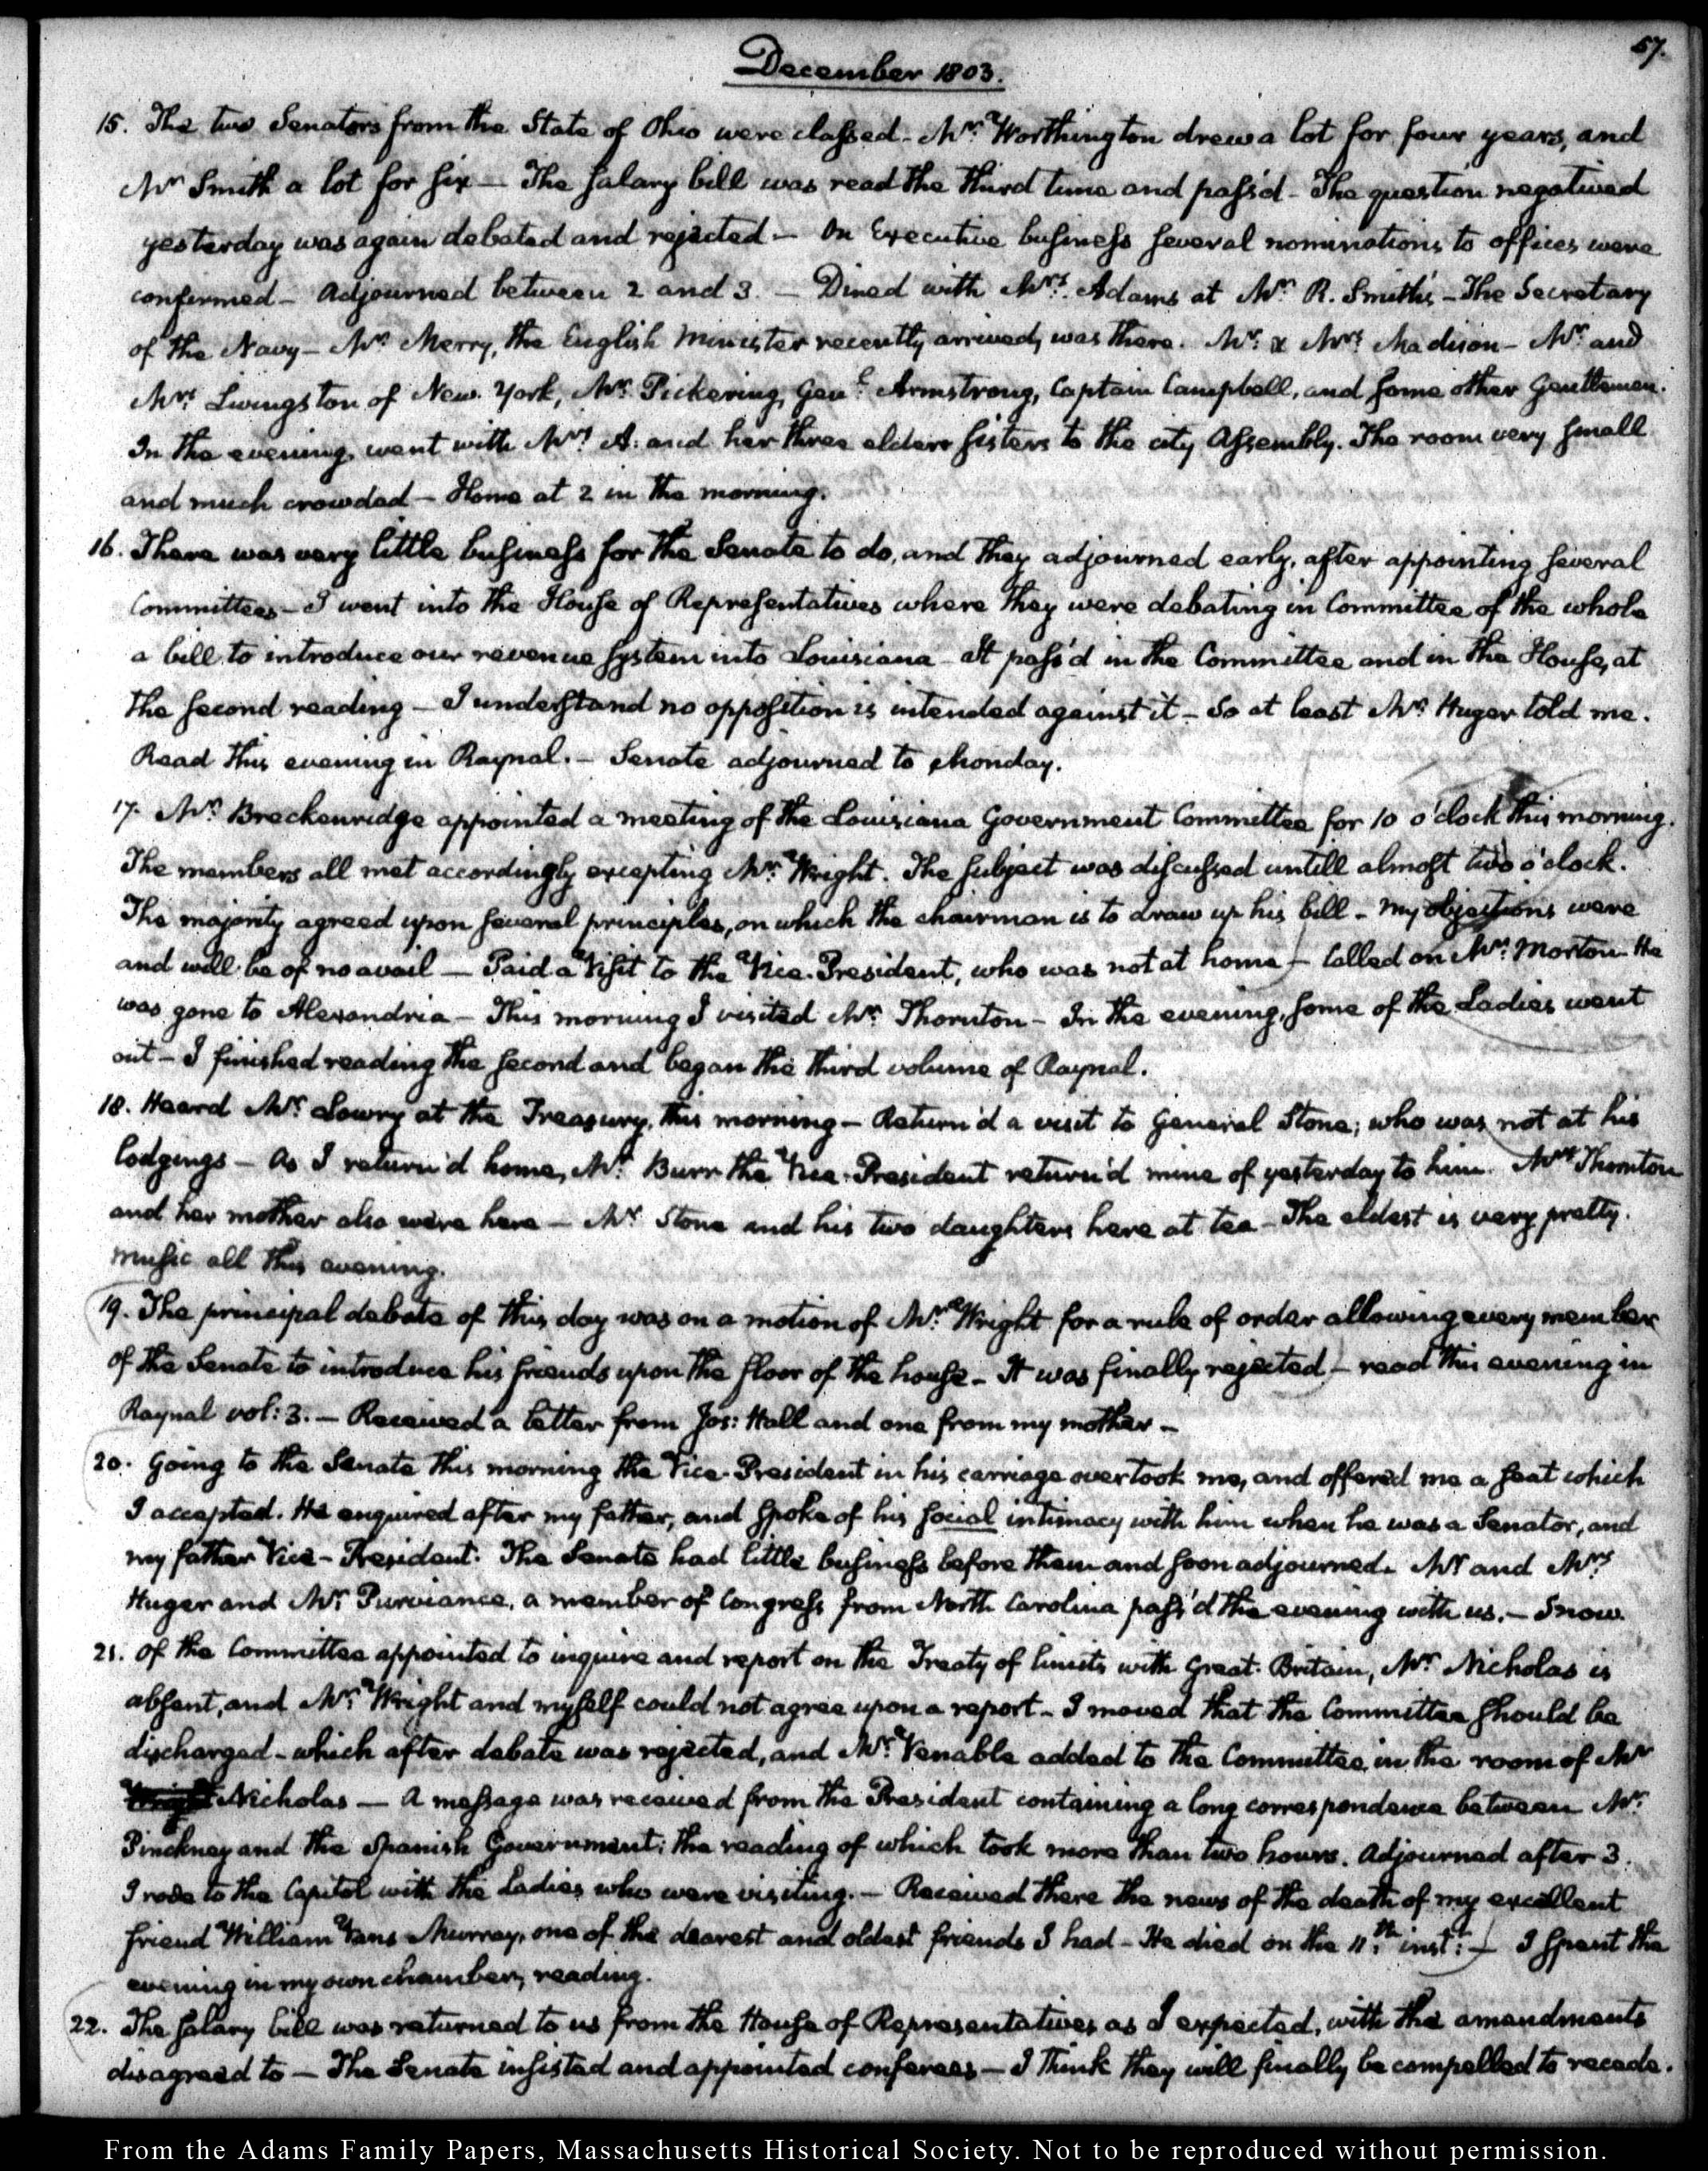 57.
December 1803.
15. The two Senators from the State of Ohio were classed - Mr. Worthington drew a lot for four years, and
Mr Smith a lot for six — The salary bill was read the third time and pass'd - The question negatived
yesterday was again debated and rejected — On Executive business several nominations to offices were
confirmed — Adjourned between 2 and 3. — Dined with Mrs. Adams at Mr. R. Smith's - The Secretary
of the Navy — Mr. Merry, the English Minister recently arrived, was there. Mr. & Mrs. Madison — Mr. and
Mrs. Livingston of New York, Mr. Pickering, Genl. Armstrong, Captain Campbell, and some other Gentlemen.
In the evening, went with Mrs. A. and her three elder sisters to the city Assembly. The room very small
and much crowded — Home at 2 in the morning.
16. There was very little business for the Senate to do, and they adjourned early, after appointing several
Committees — I went into the House of Representatives where they were debating in Committee of the whole
a bill to introduce our revenue system into Louisiana - It pass'd in the Committee and in the House, at
the second reading — I understand no opposition is intended against it — So at least Mr. Huger told me.
Read this evening in Raynal. — Senate adjourned to Monday.
17. Mr. Breckenridge appointed a meeting of the Louisiana Government Committee for 10 o'clock this morning.
The members all met accordingly excepting Mr. Wright. The subject was discussed untill almost two o'clock.
The majority agreed upon several principles, on which the chairman is to draw up his bill - My objections were
and will be of no avail — Paid a Visit to the Vice-President, who was not at home — Called on Mr. Morton - He
was gone to Alexandria — This morning I visited Mr. Thornton — In the evening, some of the Ladies went
out — I finished reading the second and began the third volume of Raynal.
18. Heard Mr. Lowry at the Treasury, this morning — Return'd a visit to General Stone; who was not at his
lodgings — As I return'd home, Mr. Burr the Vice-President return'd mine of yesterday to him. Mrs. Thornton
and her mother also were here — Mr Stone and his two daughters here at tea - The eldest is very pretty.
Music all this evening.
19. The principal debate of this day was on a motion of Mr. Wright for a rule of order allowing every member
of the Senate to introduce his friends upon the floor of the house — It was finally rejected — read this evening in
Raynal vol: 3. — Received a letter from Jos: Hall and one from my mother —
20. Going to the Senate this morning the Vice-President in his carriage overtook me, and offered me a seat which
I accepted. He enquired after my father, and spoke of his social intimacy with him when he was a Senator, and
my father Vice-President. The Senate had little business before them and soon adjourned. Mr and Mrs
Huger and Mr Purviance, a member of Congress from North Carolina pass'd the evening with us. — Snow.
21. Of the Committee appointed to inquire and report on the Treaty of limits with Great-Britain, Mr. Nicholas is
absent, and Mr. Wright and myself could not agree upon a report - I moved that the Committee should be
discharged - which after debate was rejected, and Mr. Venable added to the Committee, in the room of Mr
Wright Nicholas — A message was received from the President containing a long correspondence between Mr.
Pinckney and the Spanish Government; the reading of which took more than two hours. Adjourned after 3.
I rode to the Capitol with the Ladies who were visiting. — Received there the news of the death of my excellent
friend William Vans Murray, one of the dearest and oldest friends I had — He died on the 11th. inst: — I spent the
evening in my own chamber, reading.
22. The salary bill was returned to us from the House of Representatives as I expected, with the amendments
disagreed to — The Senate insisted and appointed conferees — I think they will finally be compelled to recede.
From the Adams Family Papers, Massachusetts Historical Society. Not to be reproduced without permission.